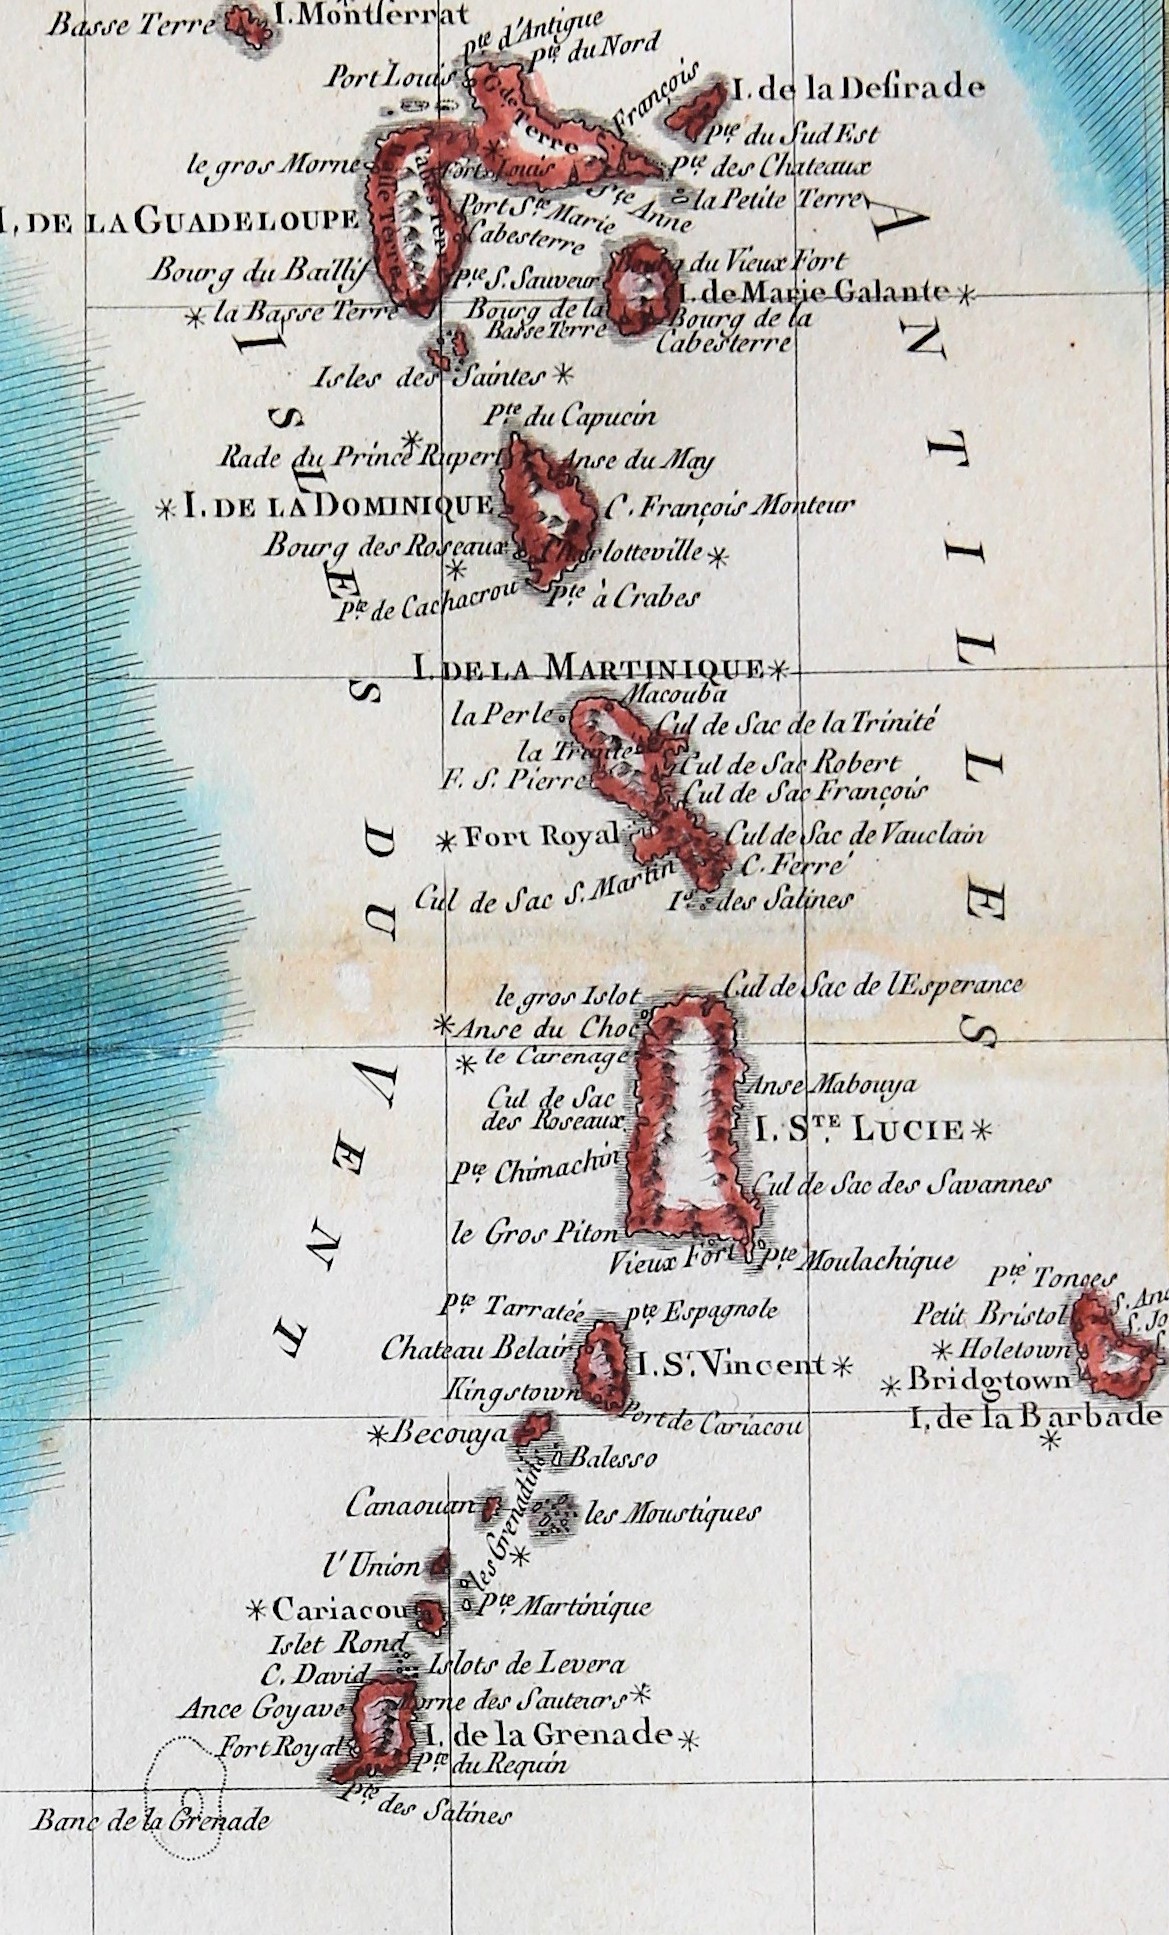 Basse Terre
I. Montſerrat
Pte d'Antigue
Pte du Nord
Port Louis
François
I. de la Deſirade
Gde Terre
Pte du Sud Est
le gros Morne
Fort Louis
Pte des Chateaux
Ste Anne
la Petite Terre
Basse Terre
Cabes Terre
I. DE LA GUADELOUPE
Port Ste Marie
Cabesterre
Bourg du Baillif
Pte S. Sauveur
Bourg du Vieux Fort
I. de Marie Galante*
*la Basse Terre
Bourg de la
Basse Terre
Bourg de la
Cabesterre
Isles des Saintes*
Pte du Capucin
Rade du Prince Rupert
*
Anse du May
*I. DE LA DOMINIQUE
C. François Monteur
Bourg des Roseaux
*
Charlotteville*
Pte de Cachacrou
Pte à Crabes
I. DE LA MARTINIQUE*
Macouba
la Perle
Cul de Sac de la Trinité
la Trinité
Cul de Sac Robert
F. S. Pierre
Cul de Sac François
*Fort Royal
Cul de Sac de Vauclain
C. Ferré
Cul de Sac S. Martin
Is. des Salines
le gros Islot
Cul de Sac de l'Esperance
*Anse du Choc
*le Carenage
Anse Mabouya
Cul de Sac
des Roseaux
I. STE LUCIE*
Pte Chimachin
Cul de Sac des Savannes
le Gros Piton
Vieux Fort
Pte Moulachique
Pte Tonces
Pte Tarratée
Pte Espagnole
Petit Bristol
S. And
S. Jo
Chateau Belair
I. St. Vincent*
*Holetown
Kingstown
*Bridgtown
Port de Cariacou
I. de la Barbade
*
*Becouya
Balesso
Canaouan
les Moustiques
les Grenadins
*
l'Union
*Cariacou
Pte Martinique
Islet Rond
C. David
Islots de Levera
Ance Goyave
Morne des Sauteurs*
Fort Royal
I. de la Grenade*
Pte du Requin
Pte des Salines
Banc de la Grenade
ISLES DU VENT
ANTILLES